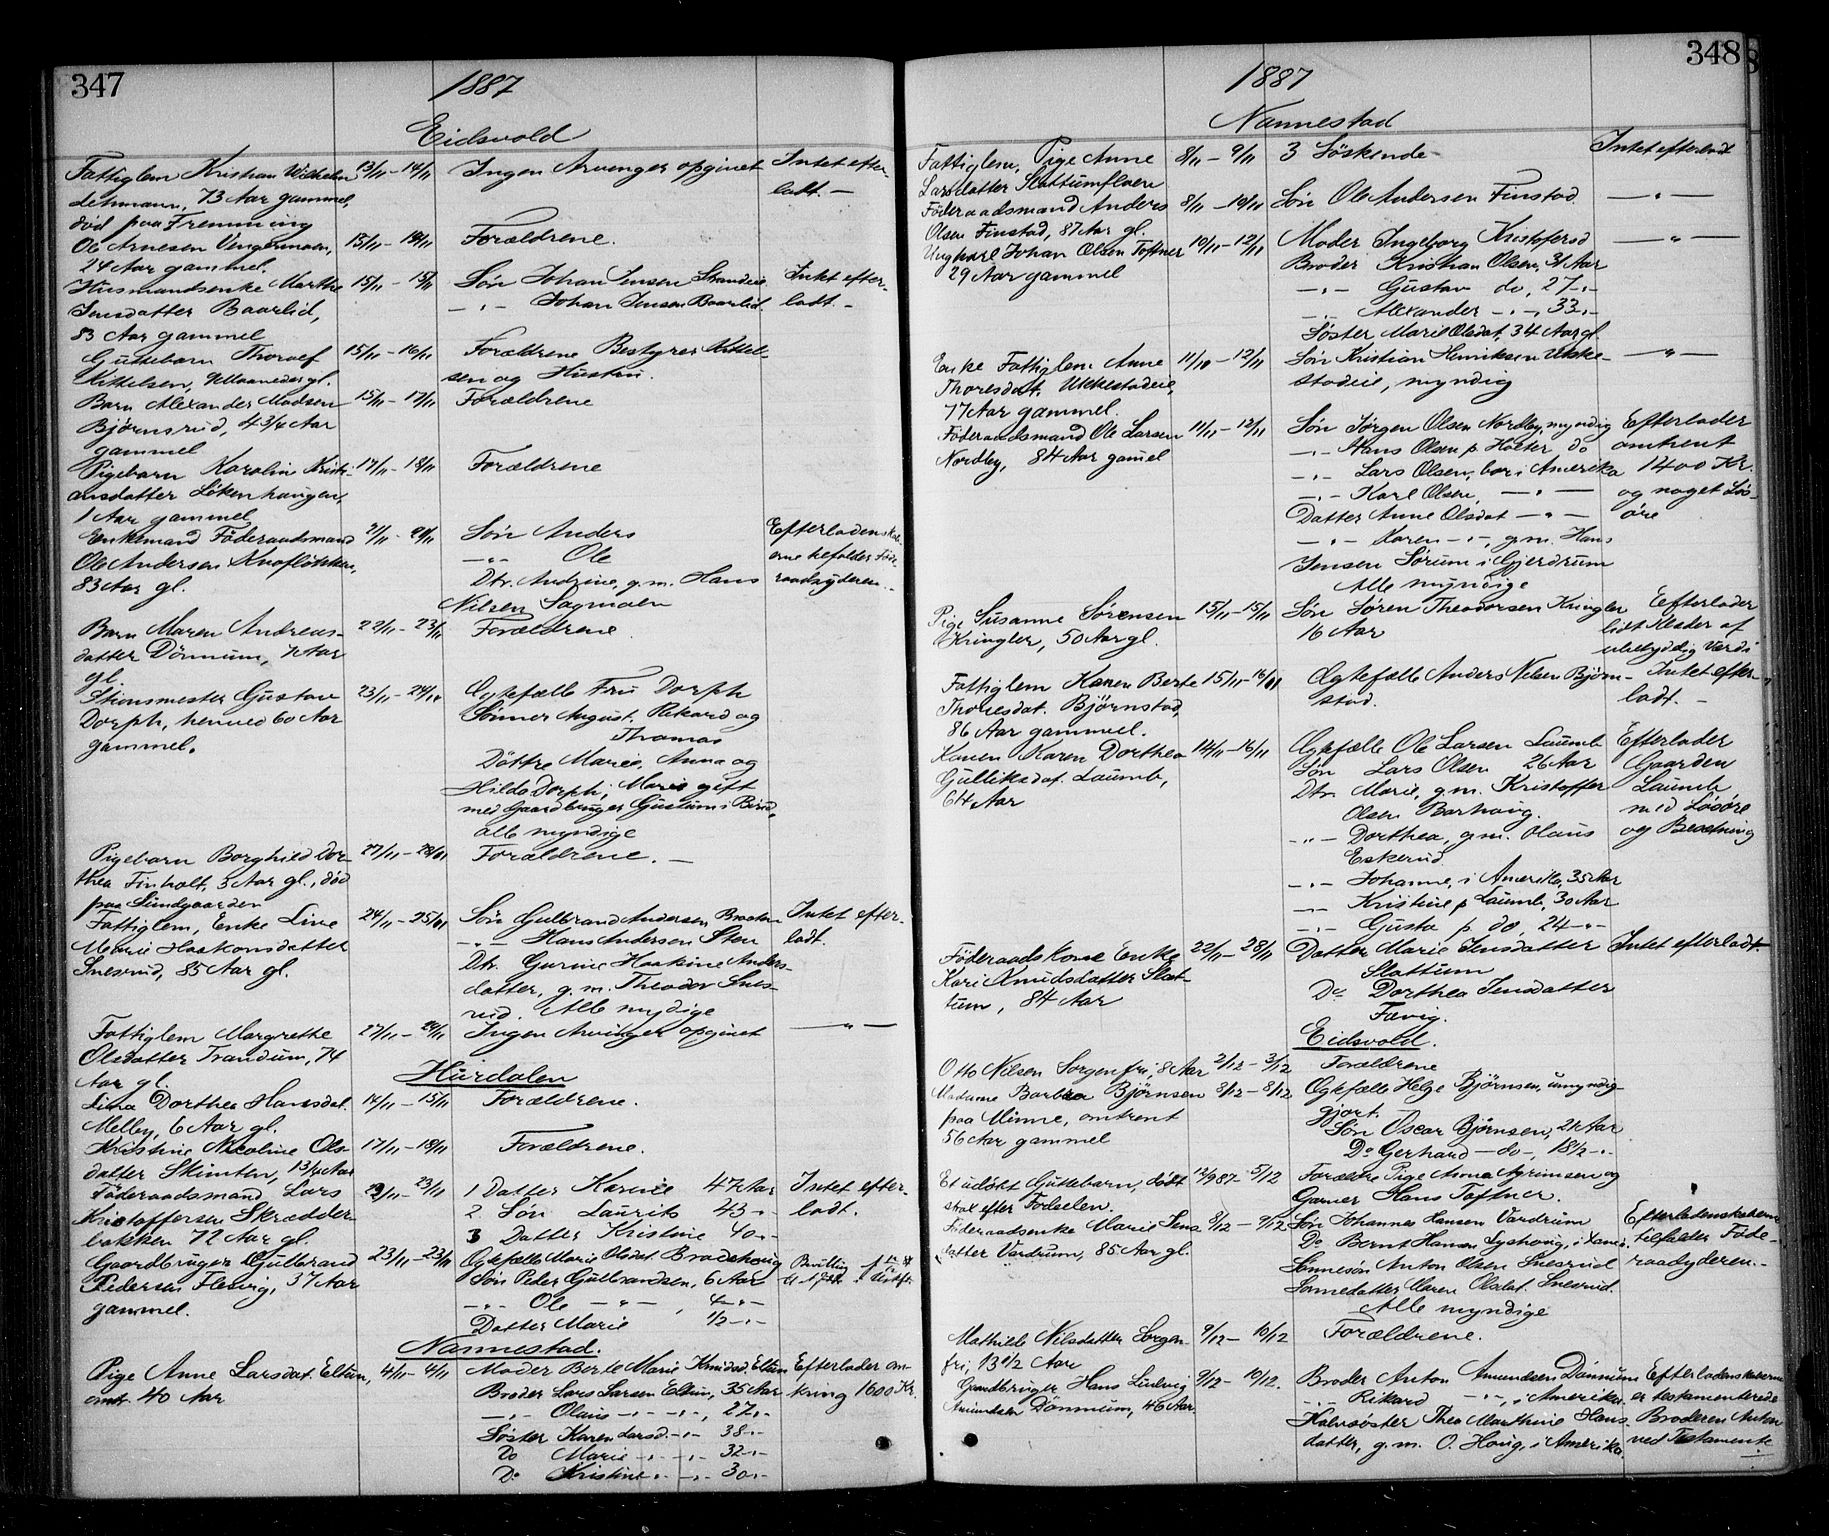 347
1887
Eidsvold
Fattiglem Kristian Wilhelm 13/11 - 14/11 Ingen Arvenger opgivet Intet efter-
Lehmann, 73 Aar gammel, ladt. —
død paa Fremming
Ole Arnesen Vengenmoen, 15/11 - 18/11 Forældrene.
24 Aar gammel.
Husmandsenke Marthe 15/11 - 15/11 Søn Johan Jensen Intet efter-
Jensdatter Baarlid, —"— Johan Jensen Baarlid. ladt. -
83 Aar gammel
Guttebarn Thoralf 15/11 - 16/11 Forældrene Bestyrer Kittel-
Kittelsen, Maaneder gl. sen og Hustru.
Barn Alexander Madsen 15/11 - 17/11 Forældrene
Bjørnsrud, 4 3/4 Aar
gammel
Pigebarn Karoline Kristi- 17/11 - 18/11 Forældrene
ansdatter Løkenhaugen,
1 Aar gammel
Enkemand Føderaadsmand 21/11 - 21/11 Søn Anders Efterladenskab-
Ole Andersen Knofløkken, —"— Ole erne befalder Føde-
83 Aar gl. Dtr. Andrine, g. m. Hans raadsyderen. -
Nilsen Sagmoen
Barn Maren Andreas- 22/11 - 23/11 Forældrene.
datter Dönnum, Aar
gl.
Stionsmester Gustav 23/11 - 24/11 Egtefælle Fru Dorph
Dorph, henved 60 Aar Sønner August, Rikard og
gammel. Thomas
Døttre Marie, Anna og
Hilda Dorph; Marie gift
med Gaardbruger Gustum i
alle myndige
Pigebarn Borghild Dor- 27/11 - 28/11 Forældrene. —
thea Finholt, 3 Aar gl., død
paa Sundgaarden
Fattiglem, Enke Line 24/11 - 25/11 Søn Gulbrand Andersen, Braaten Intet efter-
Marie Haakonsdatter —"— Hans Andersen Sten ladt.
Snesrud, 85 Aar gl. Dtr. Gurine Haakine Anders-
datter, g. m. Theodor Snes-
rud. Alle mydige
Fattiglem Margrethe 27/11 - 29/11 Ingen Arvinger opgivet — " —
Olsdatter Trandum, 74
Aar gl.
Hurdalen
Lina Dorthea Hansdat. 14/11 - 15/11 Forældrene.
Melby, 6 Aar gl.
Kristine Nicoline Ols- 17/11 - 18/11 Forældrene.
datter Skimten, 1 3/4 Aar
Føderaadsmand Lars 23/11 - 23/11 1 Datter Karine 47 Aar Intet efter-
Kristoffersen Skrædder- 2 Søn Laurits 43 - ladt.
bakken 72 Aar gl. 3 Datter Kristine 40 -
Gaardbruger Gulbrand 23/11 - 23/11 Egtefælle Marie Olsdat. Brodshoug
Pedersen Flesvig, 37 Aar Søn Peder Gulbrandsen, 6 Aar
gammel. —"— Ole —"—, 4 —"—
Datter Marie 1/2 —"—
Nannestad.
Pige Anne Larsdat. Eltun, 4/11 - 4/11 Moder Berte Marie Knudsd. Eltun Efterlader om-
omtr. 40 Aar Broder Lars Larsen Eltun, 35 Aar kring 1600 Kr.
—"— Olaus —"— —"—, 27 -
Søster Karen Larsd. —"— 38 -
Do Marie —"— —"— 32 -
Do Kristine —"— —"— 30 -
348
1887
Nannestad
Fattiglem, Pige Anne 8/11 - 9/11 3 Söskende Intet efterladt
Larsdatter Slattumfloen
Föderaadsmand Anders 8/11 - 10/11 Søn Ole Andersen Finstad — " —
Olsen Finstad, 87 Aar gl.
Ungkarl Johan Olsen Toftner 10/11 - 12/11 Moder Ingeborg Kristofersd — " —
29 Aar gammel Broder Kristian Olsen, 31 Aar
—"— Gustav do, 27 —"—
—"— Alexander —"—, 33 —"—
Søster Marie Olsdat, 34 Aar gl.
Enke Fattiglem Anne 11/10 - 12/11 Søn Kristian Henriksen Ukke- — " —
Thoresdat. Ukkestadeie, stadeie, myndig
77 Aar gammel.
Føderaadsmand Ole Larsen 11/11 - 12/11 Søn Jørgen Olsen Nordby, myndig Efterlader
Nordby, 84 Aar gamel —"— Hans Olsen p. Holter do omtrent
—"— Lars Olsen, bor i Amerika 1400 Kr.
—"— Karl Olsen, — " — og noget Løs-
Datter Anne Olsdat — " — øre
—"— Karen —"—, g. m. Hans
Jensen Sørum i Gjerdrum
Alle myndige
Pige Susanne Sørensen 15/11 - 15/11 Søn Søren Theodorsen Kringler Eefterlader
Kringler, 50 Aar gl. 16 Aar lidt Klæder af
ubetydelig Værdi
Fattiglem Konen Berte 15/11 - 16/11 Egtefælle Anders Nilsen Bjørn- Intet efter-
Thoresdat. Bjørnstad, stad. ladt. -
86 Aar gammel.
Konen Karen Dorthea 14/11 - 16/11 Egtefælle Ole Larsen Laumb Efterlader
Gulliksdat. Laumb, Søn Lars Olsen 26 Aar Gaarden
64 Aar Dtr. Marie, g. m. Kristoffer Laumb
Olsen Barhaug. med Løsøre
—"— Dorthea, g. m. Olaus og Besætning
Eskerud
—"— Johanne, i Amerika, 35 Aar
—"— Kristine p Laumb, 30 Aar
—"— Gusta p do, 24 —"—
Føderaadskone Enke 22/11 - 28/11 Datter Marie Jensdatter Intet efterladt
Kari Knudsdatter Slat- Slattum
tum, 84 Aar Do Dorthea Jensdatter
Fævig.
Eidsvold.
Otto Nilsen Sorgenfri, 8 Aar 2/12 - 3/12 Forældrene
Madame Barbra Bjørnsen 8/12 - 8/12 Egtefælle Helge Bjørnsen, umyndig-
paa Minne, omtrent gjort.
56 Aar gammel Søn Oscar Bjørnsen, 21 Aar
Do Gerhard —do—, 18 1/2 —"—
Et udöbt Guttebarn, dødt 12/9 87 - 5/12 Forældre Pige Anna Agrimsen og
strax efter Fødselen. Garver Hans Toftner.
Føderaadsenke Marie Jens- 8/12 - 9/12 Søn Johannes Hansen Vardrum Efterladenskaberne
datter Vardrum, 85 Aar gl. Do Bernt Hansen Lyshoug, i tilfalder Føde-
Sønnesøn Anton Olsen Snesrud raadyderen. -
Sønnedatter Maren Olsdat. Snesrud.
Alle myndige
Mathilde Nilsdatter Sorgen- 9/12 - 10/12 Forældrene.
fri, 13 1/2 Aar
Gaardbruger Hans Ludvig 9/12 - 10/12. Broder Anton Amundsen Dönnum Efterladenskaberne
Amundsen Dönnum, 46 Aar. —"— Rikard —"—, i Amerika er testamenterede
Halvsøster Thea Marthine Hans- Broderen Anton
datter, g. m. O. Houg, i Amerika. ved Testamente